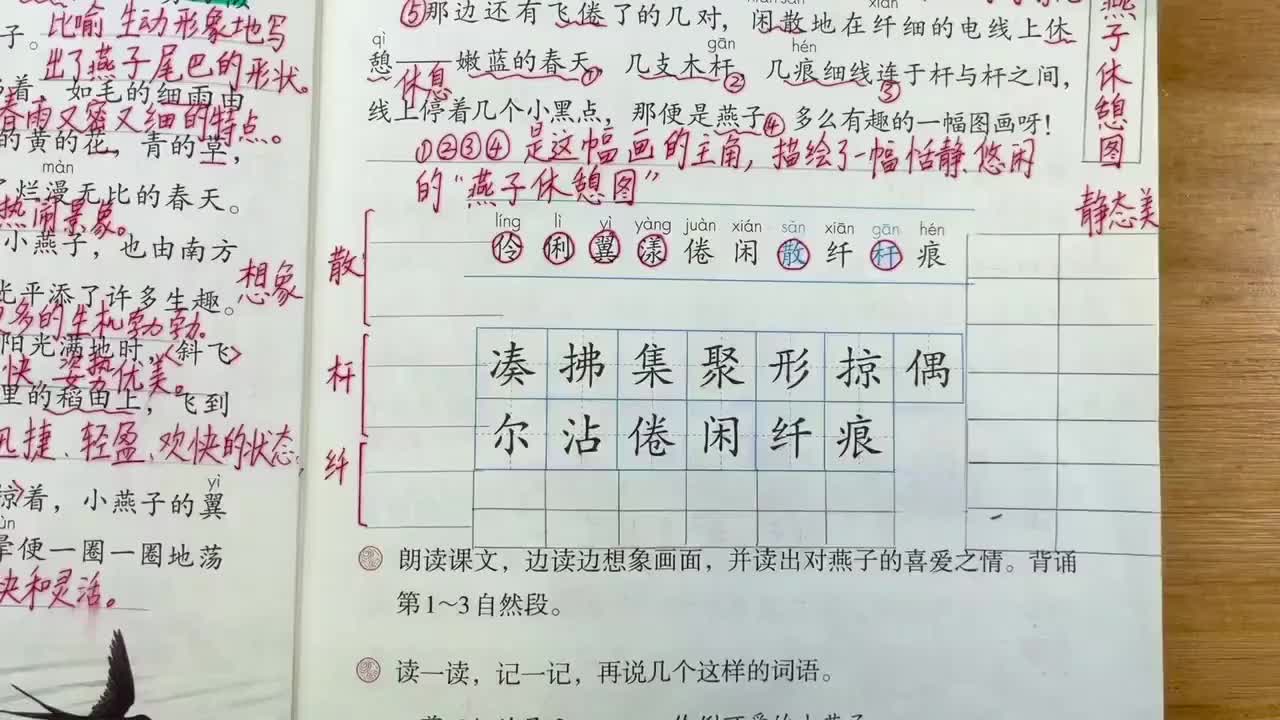 比喻 生动形象地写
子。
出了燕子尾巴的形状。
着,如毛的细雨由
春雨又密又细的特点。
的黄的花,青的草,
màn
烂漫无比的春天。
热闹景象。
小燕子,也由南方
想象
光平添了许多生趣。
多的生机勃勃。
阳光满地时,斜飞
快 姿势优美。
里的稻田上,飞到
迅捷、轻盈、欢快的状态
掠着,小燕子的翼
yì
晕便一圈一圈地荡
快和灵活。
⑤那边还有飞倦了的几对,闲散地在纤细的电线上休
qì gān hén
憩——嫩蓝的春天①,几支木杆②,几痕细线连于杆与杆之间③,
休息
线上停着几个小黑点,那便是燕子④。多么有趣的一幅图画呀!
①②③④是这幅画的主角,描绘了一幅恬静、悠闲
的“燕子休憩图”
燕子休憩图
静态美
líng lì yì yàng juàn xián sǎn xiān gān hén
伶 俐 翼 漾 倦 闲 散 纤 杆 痕
散
杆
纤
凑 拂 集 聚 形 掠 偶
尔 沾 倦 闲 纤 痕
朗读课文,边读边想象画面,并读出对燕子的喜爱之情。背诵
第1~3自然段。
读一读,记一记,再说几个这样的词语。